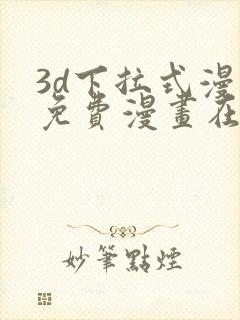 3d下拉式漫
免費漫畫在
妙筆點煙